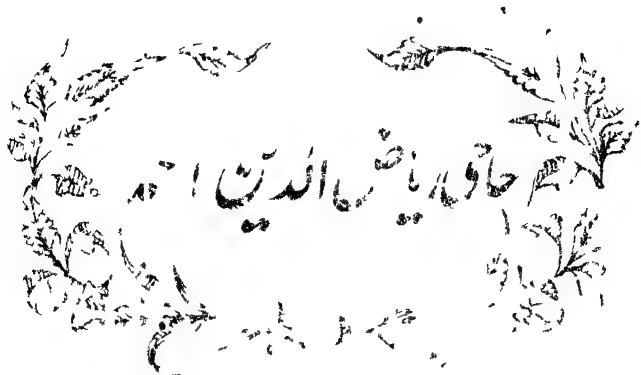 حاجی ریاض الدین احمد